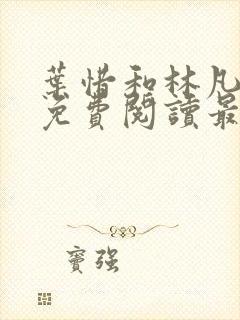 葉惜和林凡
免費閱讀最
竇強